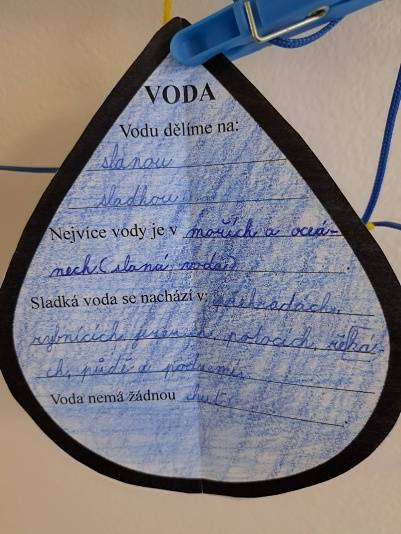 VODA
Vodu dělíme na:
slanou
sladkou
Nejvíce vody je v mořích a oceá-
nech (slaná voda).
Sladká voda se nachází v: přehradách,
rybnících, jezerech, potocích, řeká-
ch, půdě a podzemí.
Voda nemá žádnou chuť.